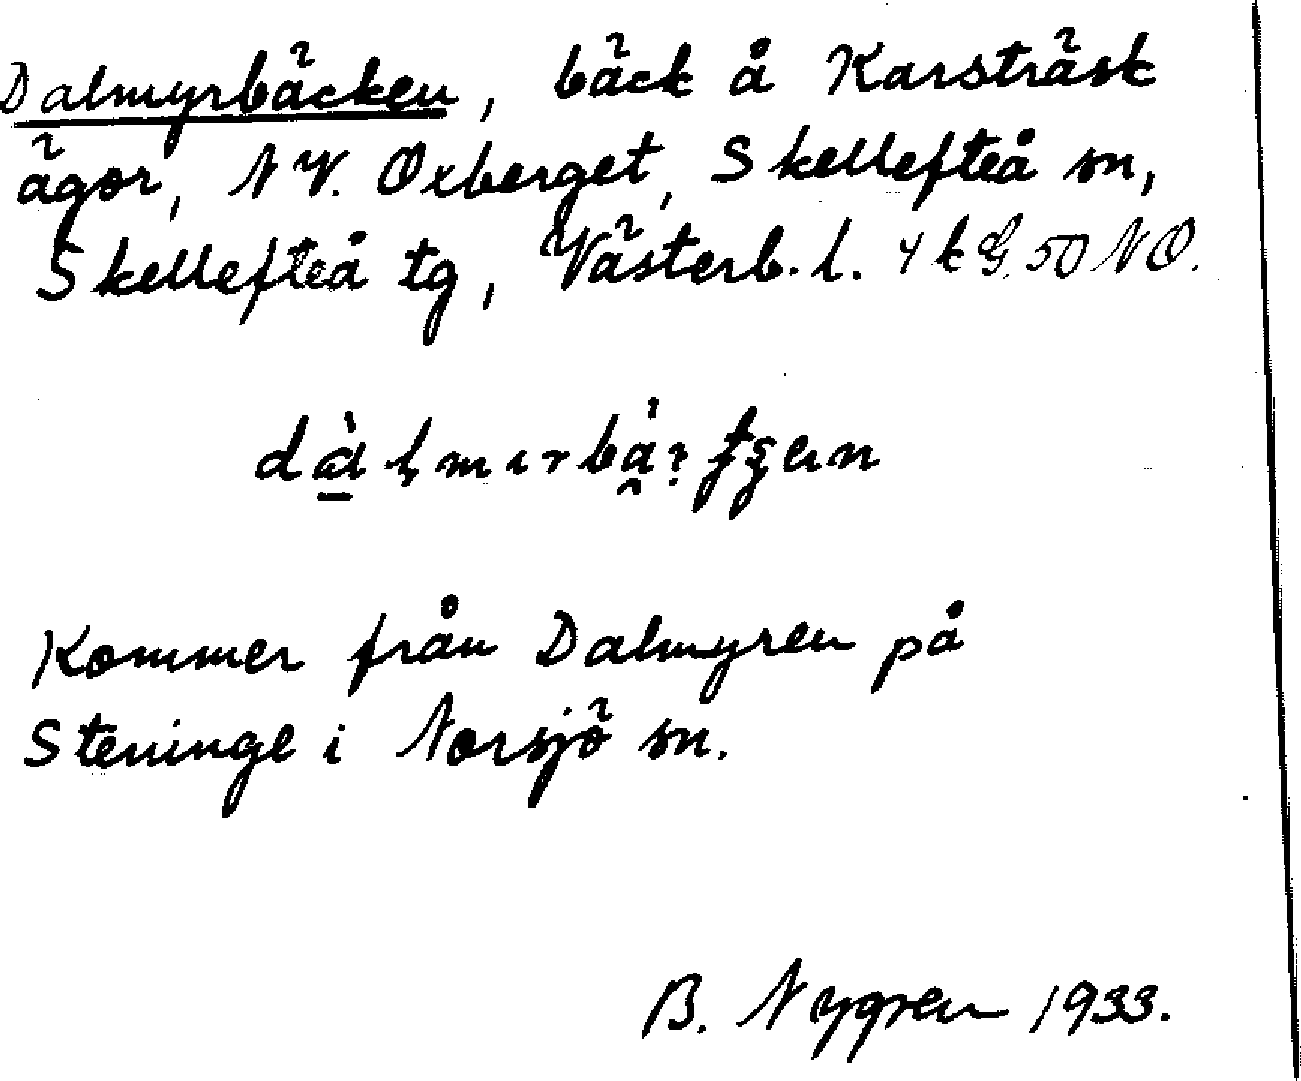 Dalmyrbäcken, bäck å Karsträsk
ägor, NV. Oxberget, Skellefteå sn,
Skellefteå tg, Västerb. l. 4 k G. 50 NO.
Kommer från Dalmyren på
Steninge i Norsjö sn.
B. Nygren 1933.